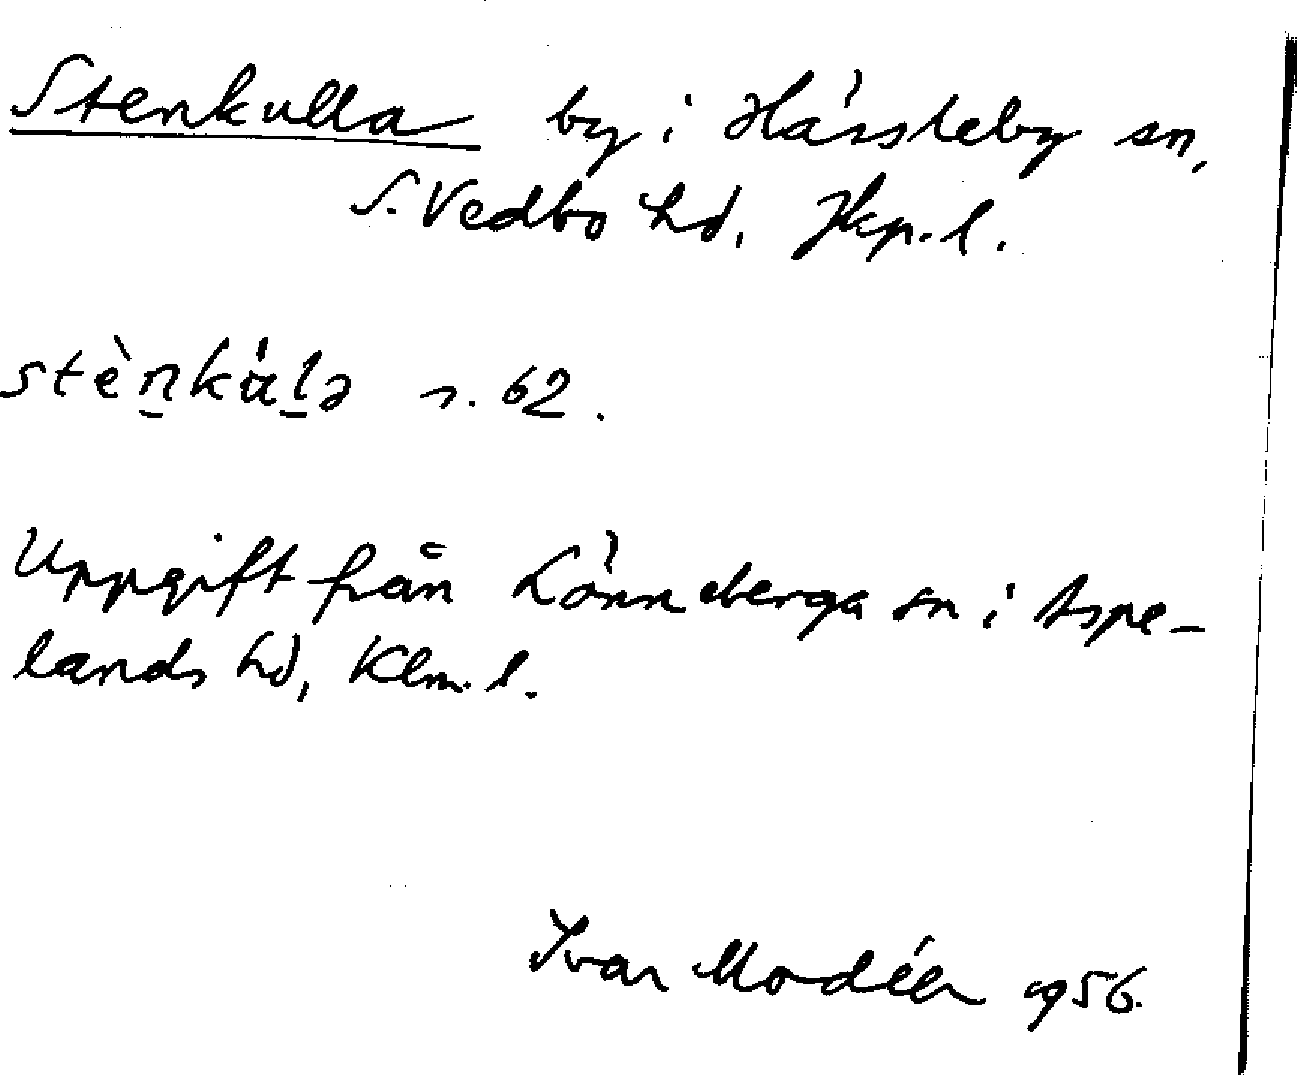 Stenkulla by i Hässleby sn,
S. Vedbo hd, Jkp. l.
stènkúlə s. 62.
Uppgift från Lönneberga sn i Aspe-
lands hd, Klm. l.
Ivar Modéer 1956.